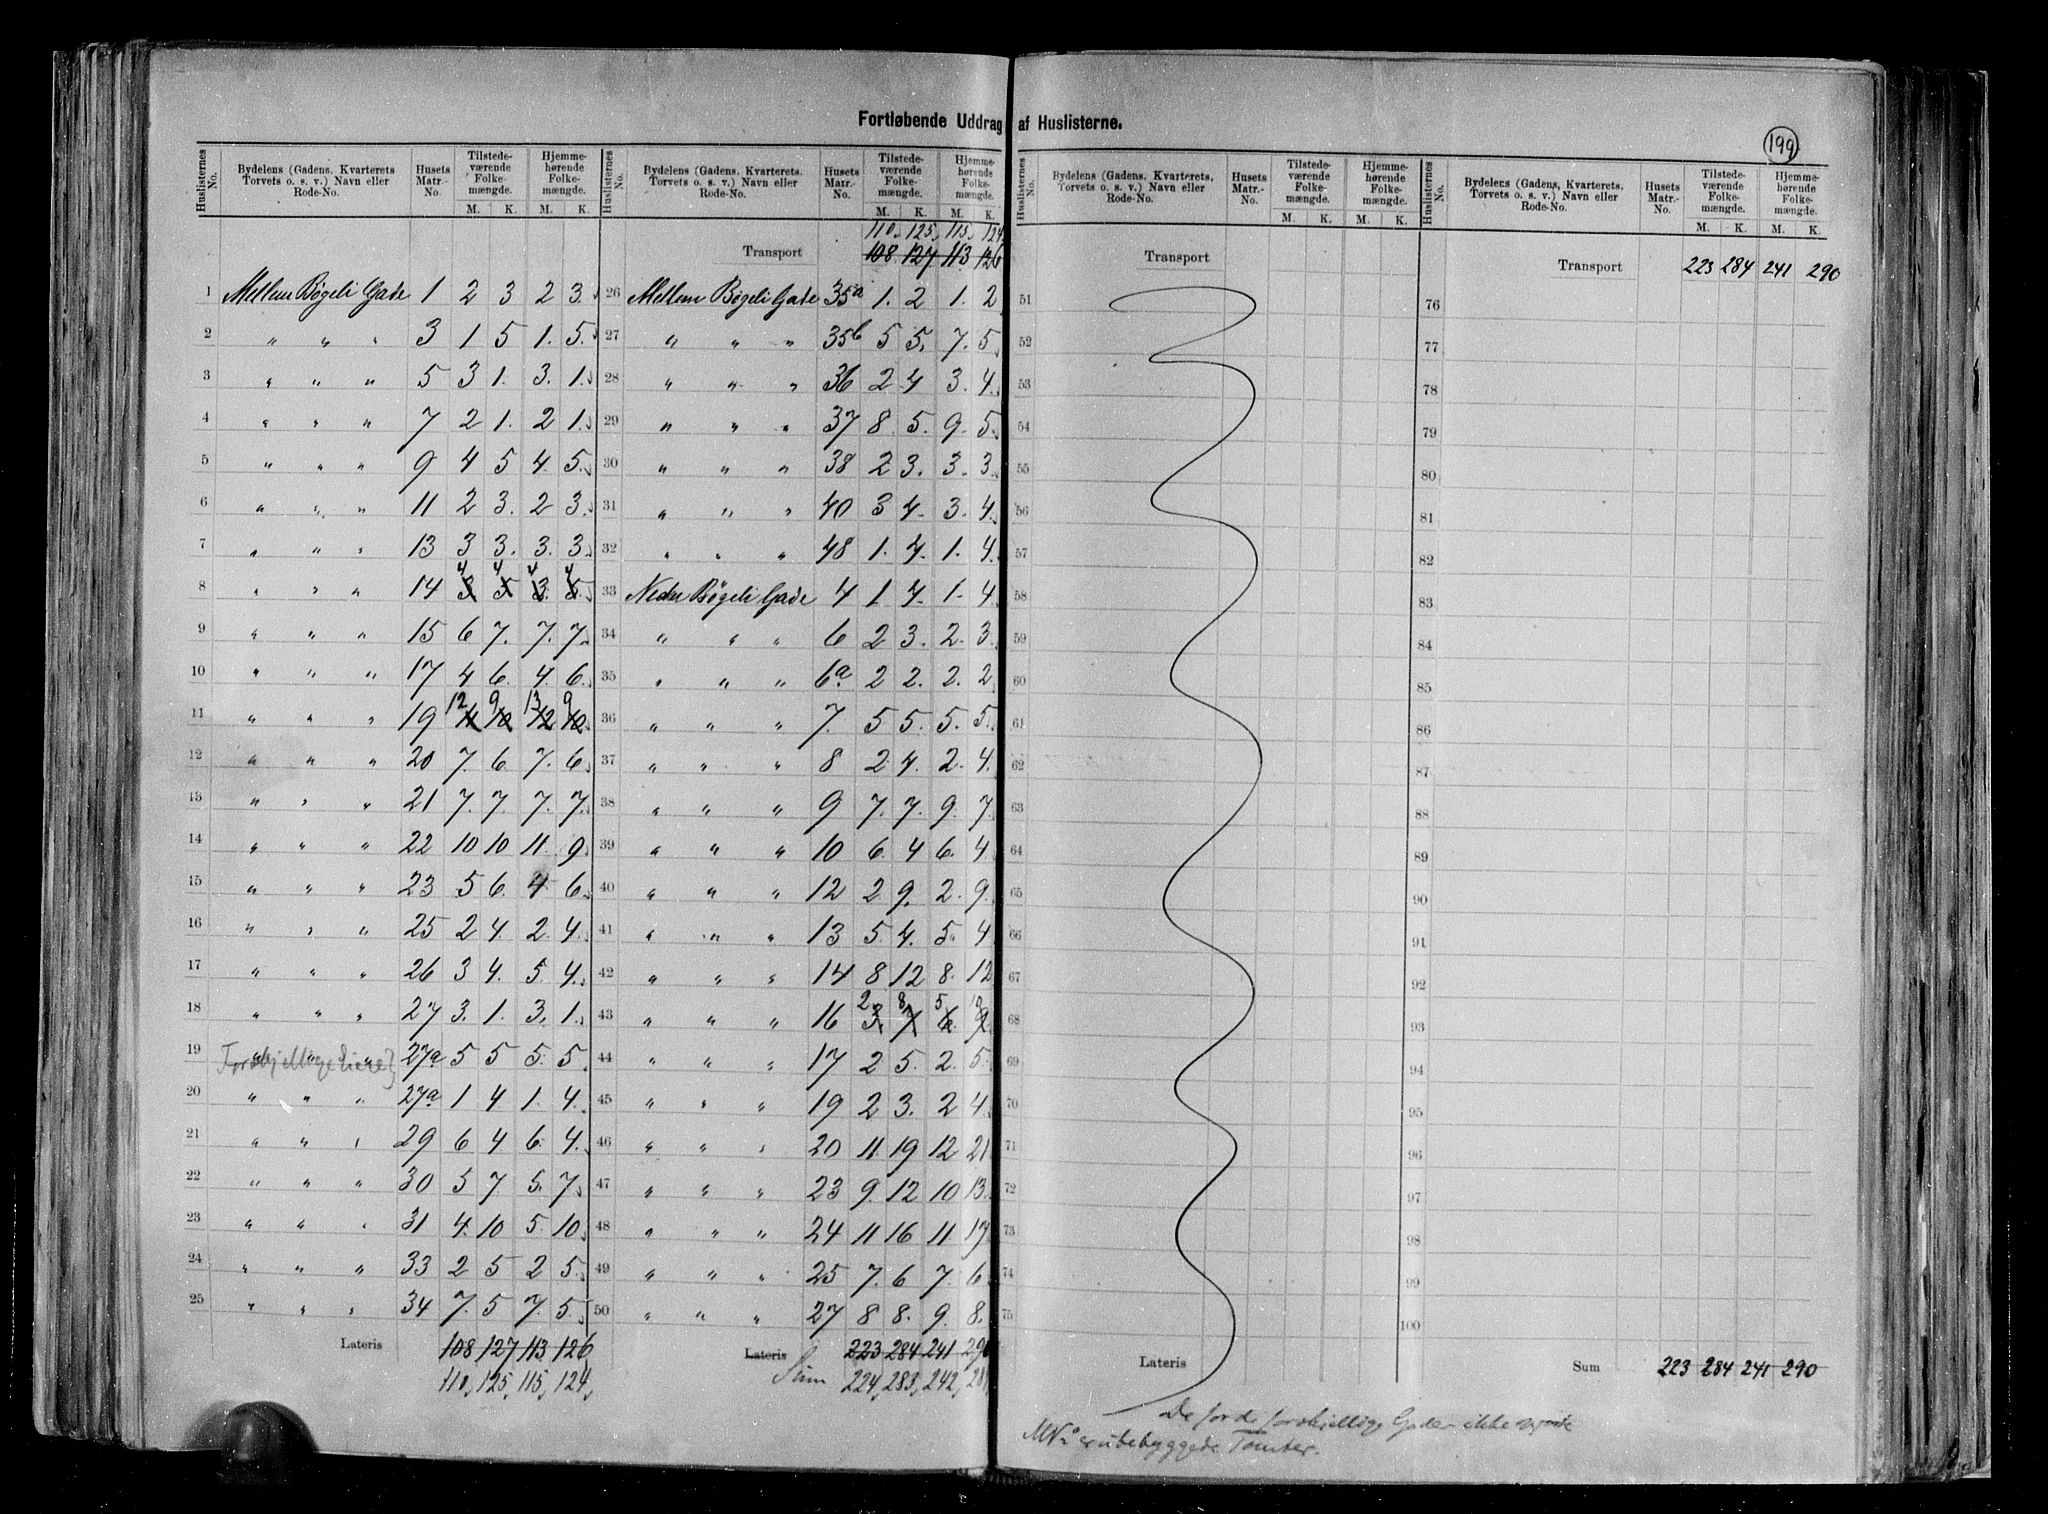 Fortløbende Uddrag af Huslisterne.
199
Huslisternes No. | Bydelens (Gadens, Kvarterets, Torvets o. s. v.) Navn eller Rode-No. | Husets Matr.-No. | Tilstedeværende Folkemængde. M. K. | Hjemmehørende Folkemængde. M. K.
1 Mellem Bøgeli Gade 1 2 3 2 3
2 " " " 3 1 5 1. 5.
3 " " " 5 3 1. 3. 1.
4 " " " 7 2 1. 2 1.
5 " " " 9 4 5 4. 5.
6 " " " 11 2 3. 2 3.
7 " " " 13 3 3. 3. 3.
8 " " " 14 3 5 3. 5. 4 4 4 4
9 " " " 15 6 7. 7. 7.
10 " " " 17 4 6. 4. 6.
11 " " " 19 11 10 12 10 12 9 13 9
12 " " " 20 7. 6. 7. 6.
13 " " " 21 7. 7. 7. 7.
14 " " " 22 10 10 11. 9.
15 " " " 23 5 6. 4. 6.
16 " " " 25 2 4. 2. 4.
17 " " " 26 3 4. 5. 4.
18 " " " 27 3. 1. 3. 1.
19 " " " 27a 5 5 5. 5. Forskjellige Eiere}
20 " " " 27a 1 4 1. 4.
21 " " " 29 6 4 6. 4.
22 " " " 30 5 7 5. 7.
23 " " " 31 4. 10 5. 10.
24 " " " 33 2 5 2 5.
25 " " " 34 7. 5 7. 5.
Lateris 108 127 113 126
110, 125, 115, 124,
110, 125, 115, 124
Transport 108 127 113 126
26 Mellem Bøgeli Gade 35a 1. 2 1. 2
27 " " " 35b 5 5. 7. 5
28 " " " 36 2 4 3. 4.
29 " " " 37 8. 5. 9. 5.
30 " " " 38 2 3. 3. 3.
31 " " " 40 3 4. 3. 4.
32 " " " 48 1. 4. 1. 4.
33 Neder Bøgeli Gade 4 1 4. 1. 4.
34 " " " 6 2 3. 2. 3.
35 " " " 6a. 2 2. 2. 2
36 " " " 7. 5 5. 5. 5.
37 " " " 8 2 4. 2. 4.
38 " " " 9 7. 7. 9. 7.
39 " " " 10 6. 4 6. 4
40 " " " 12 2 9. 2. 9.
41 " " " 13 5. 4. 5. 4
42 " " " 14 8 12 8. 12
43 " " " 16 3 7 6. 9 2 8 5 10
44 " " " 17 2 5. 2. 5.
45 " " " 19 2 3. 2 4.
46 " " " 20 11 19 12 21
47 " " " 23 9. 12 10 13.
48 " " " 24 11 16 11 17
49 " " " 25 7. 6 7. 6.
50 " " " 27 8 8. 9. 8.
Lateris 223 284 241 290
Sum 224, 283, 242,
Huslisternes No. | Bydelens (Gadens, Kvarterets, Torvets o. s. v.) Navn eller Rode-No. | Husets Matr.-No. | Tilstedeværende Folkemængde. M. K. | Hjemmehørende Folkemængde. M. K.
Transport
51
52
53
54
55
56
57
58
59
60
61
62
63
64
65
66
67
68
69
70
71
72
73
74
75
Lateris
Transport 223 284 241 290
76
77
78
79
80
81
82
83
84
85
86
87
88
89
90
91
92
93
94
95
96
97
98
99
100
Sum 223 284 241 290
De for de forskjellige Gader ikke
MNr er ubebyggede Tomter.